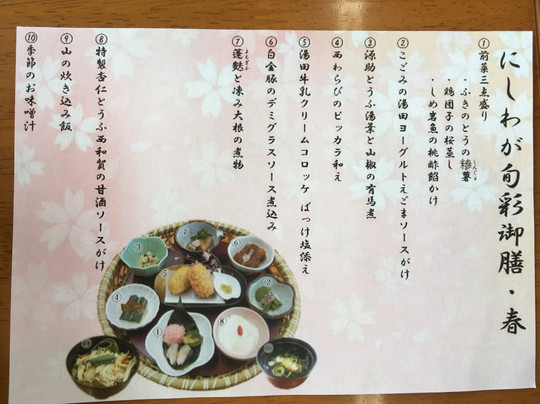 にしわが旬彩御膳・春
①前菜三点盛り
・ふきのとうの糝薯
しんじょ
・鶏団子の桜蒸し
・しめ岩魚の桃酢餡かけ
②こごみの湯田ヨーグルトえごまソースがけ
③源助とうふ湯葉と山椒の有馬煮
④西わらびのピッカラ和え
⑤湯田牛乳クリームコロッケ ばっけ塩添え
⑥白金豚のデミグラスソース煮込み
⑦蓬麩と凍み大根の煮物
よもぎふ
⑧特製杏仁とうふ西和賀の甘酒ソースがけ
⑨山の炊き込み飯
⑩季節のお味噌汁
⑦
③
⑥
⑤
④
②
①
⑧
⑨
⑩